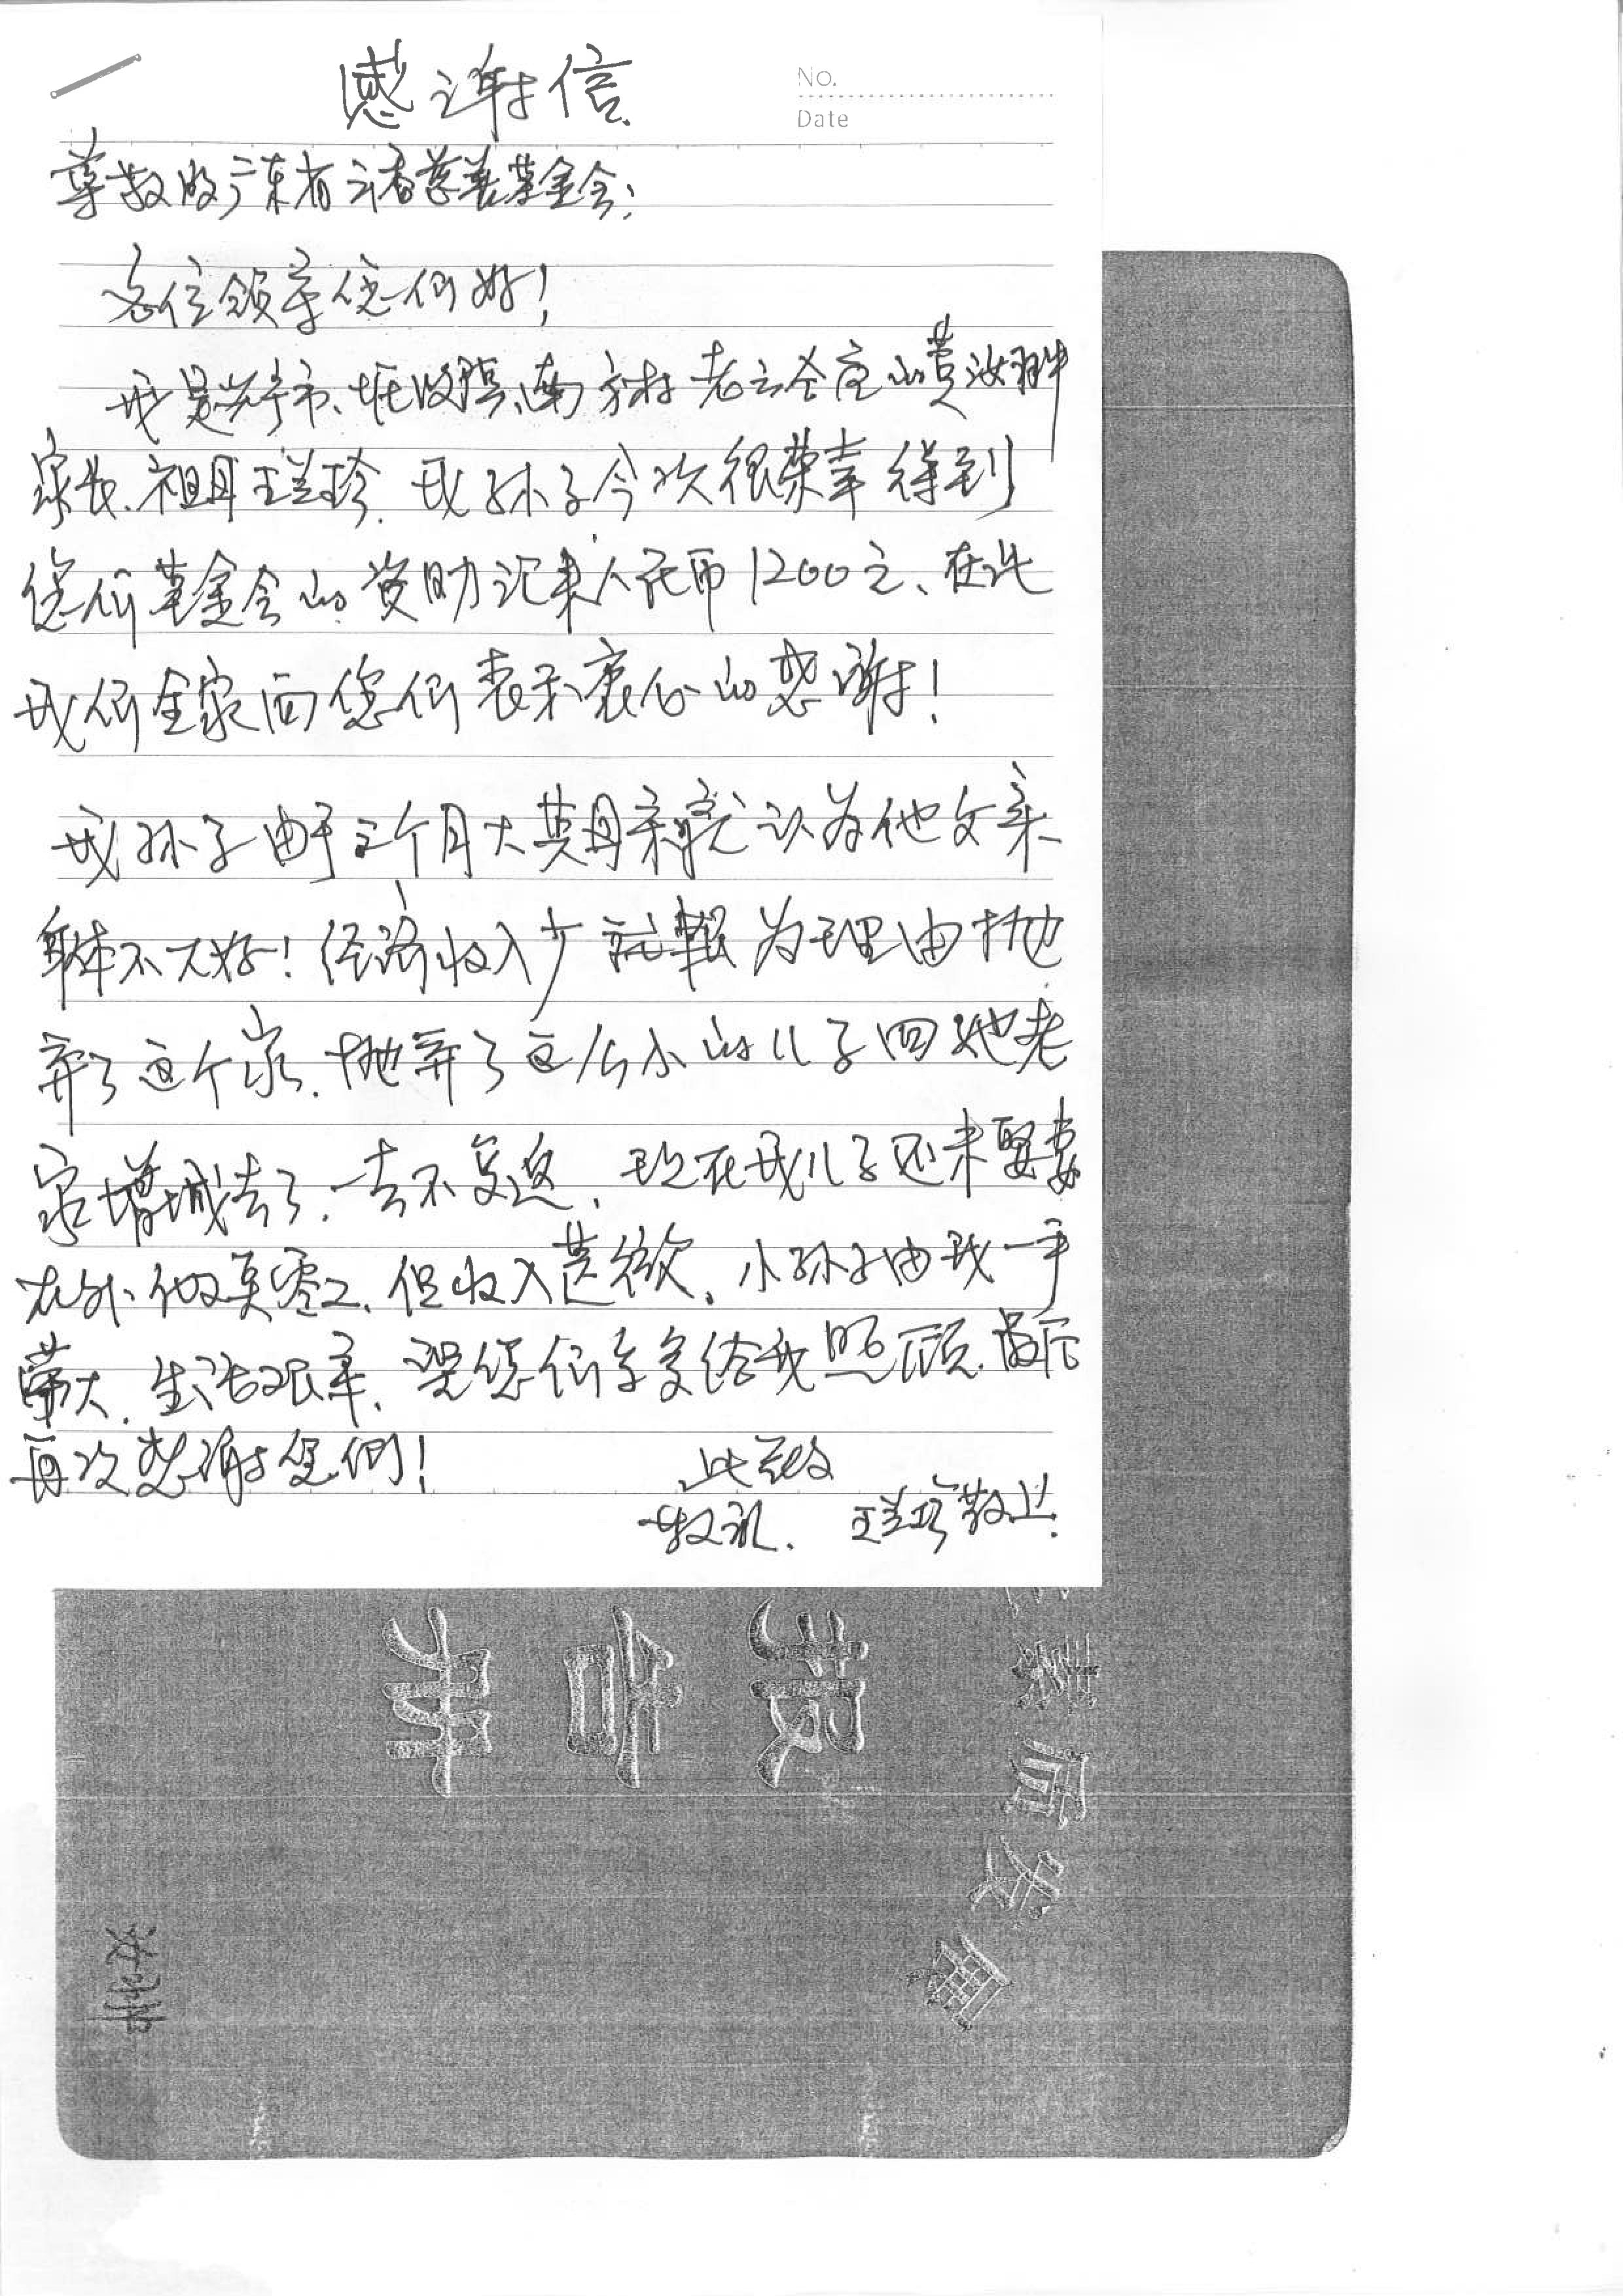 感谢信
No.
Date
尊敬的广东省云香慈善基金会:
各位领导您们好!
我是兴宁市、坭陂镇、南方村老云谷庄的黄汝
家长、祖母王兰珍. 我孙子今次很荣幸得到
您们基金会的资助记来人民币1200元、在此
我们全家向您们表示衷心的感谢!
我孙子由于三个月大其母亲竟认为他父亲
身体不大好! 经济收入少 为理由抛
弃了这个家. 抛弃了这么小的儿子回她老
家增城去了. 一去不复返, 现在我儿子还未娶妻
在外做其零工、但收入甚微. 小孙子由我一手
带大. 生活艰辛、望您们多多给我照顾. 最后
再次感谢您们!
此致
敬礼. 王兰珍敬上.